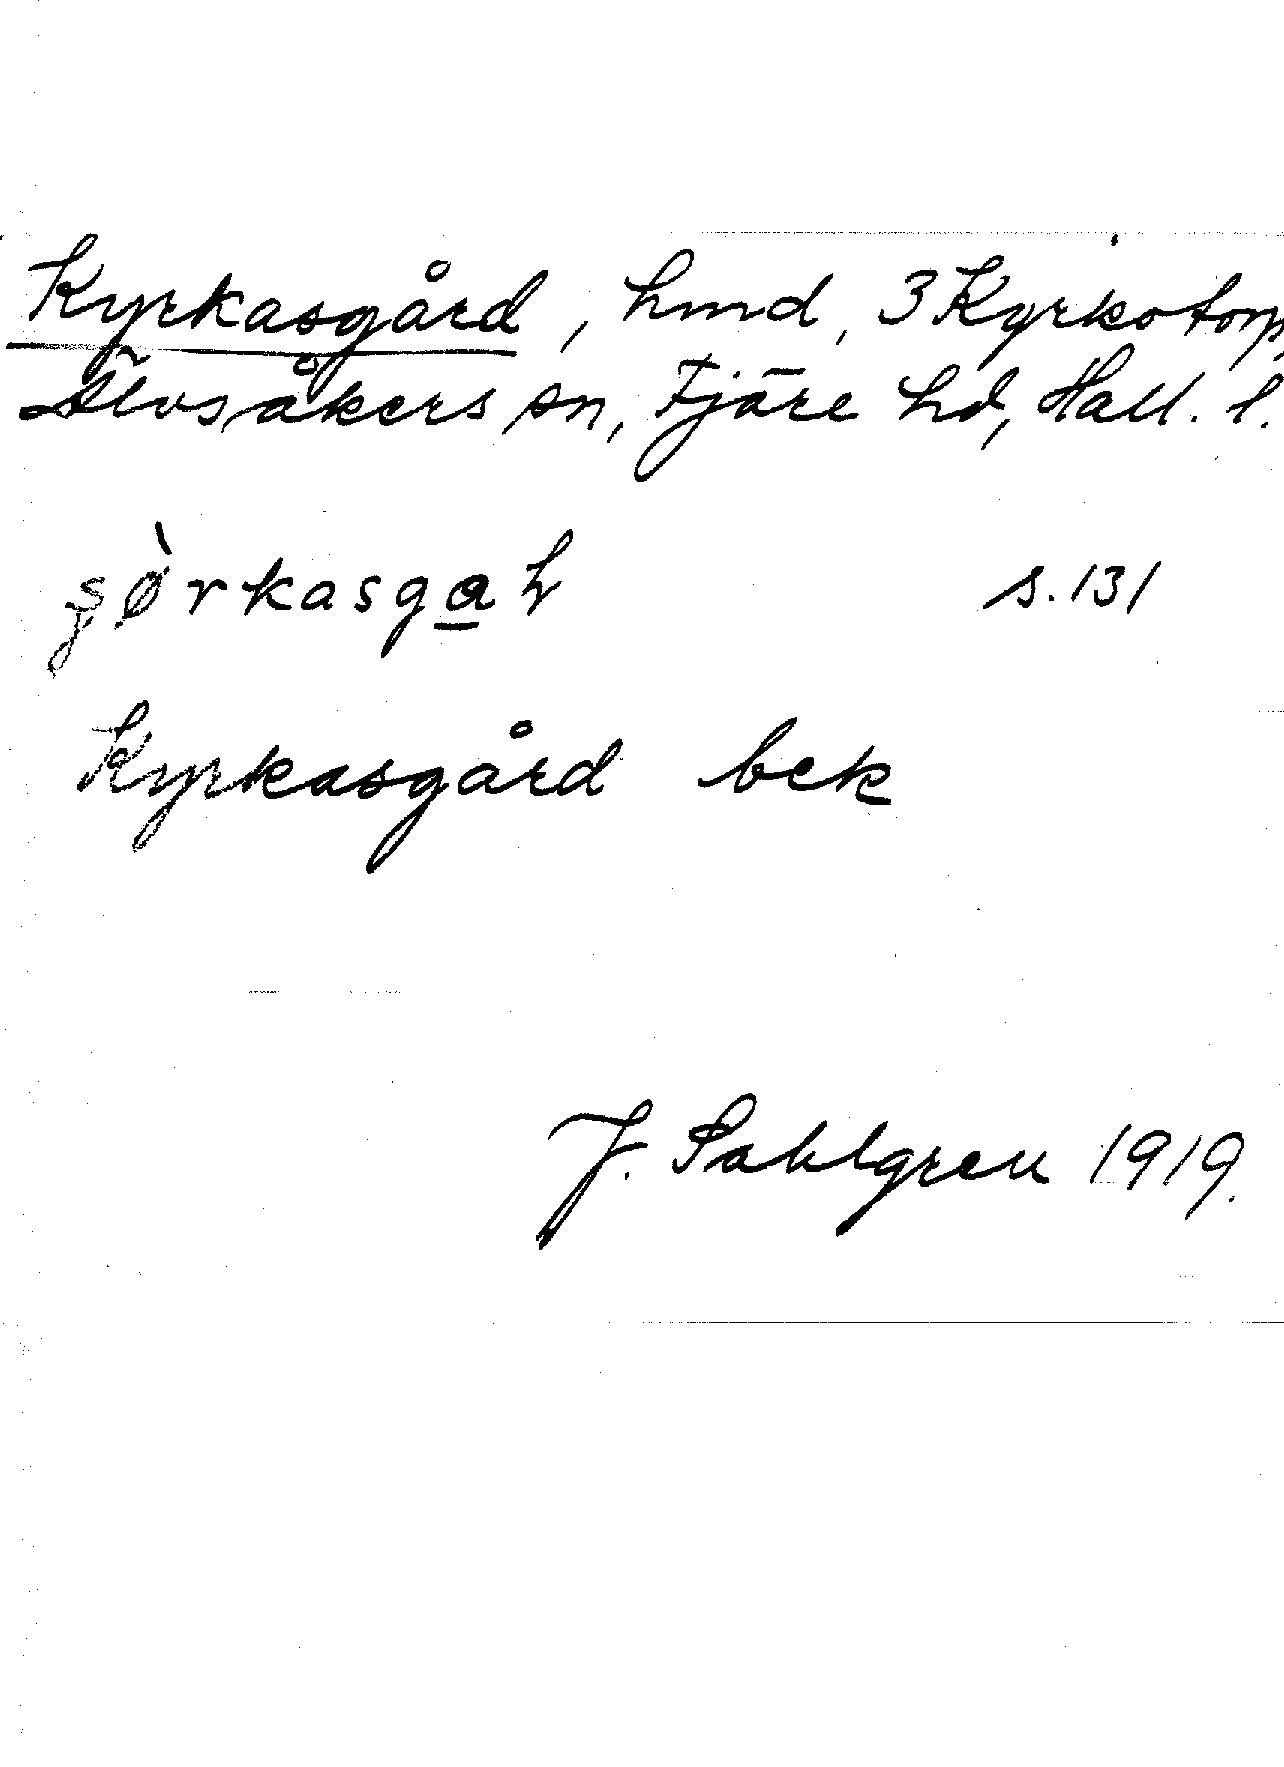 Kyrkasgård, hmd, 3 Kyrkotorp,
Älvsåkers sn, Fjäre hd, Hall. l.
s. 131
Kyrkasgård bek
J. Sahlgren 1919.